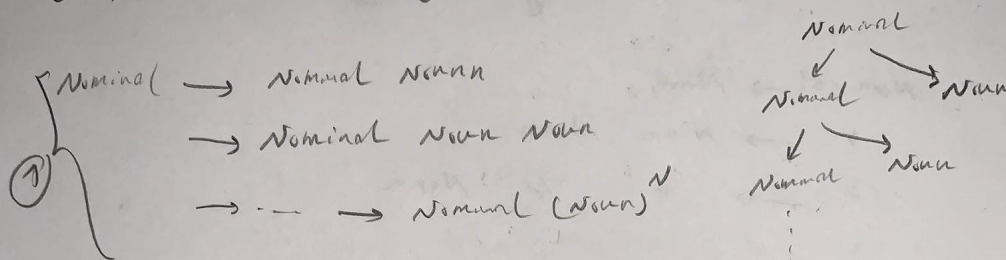 Nominal → Nominal Nounn
→ Nominal Noun Noun
→ .... → Nominal (Noun)^N
↑
Nominal
Nominal Noun
Nominal Noun